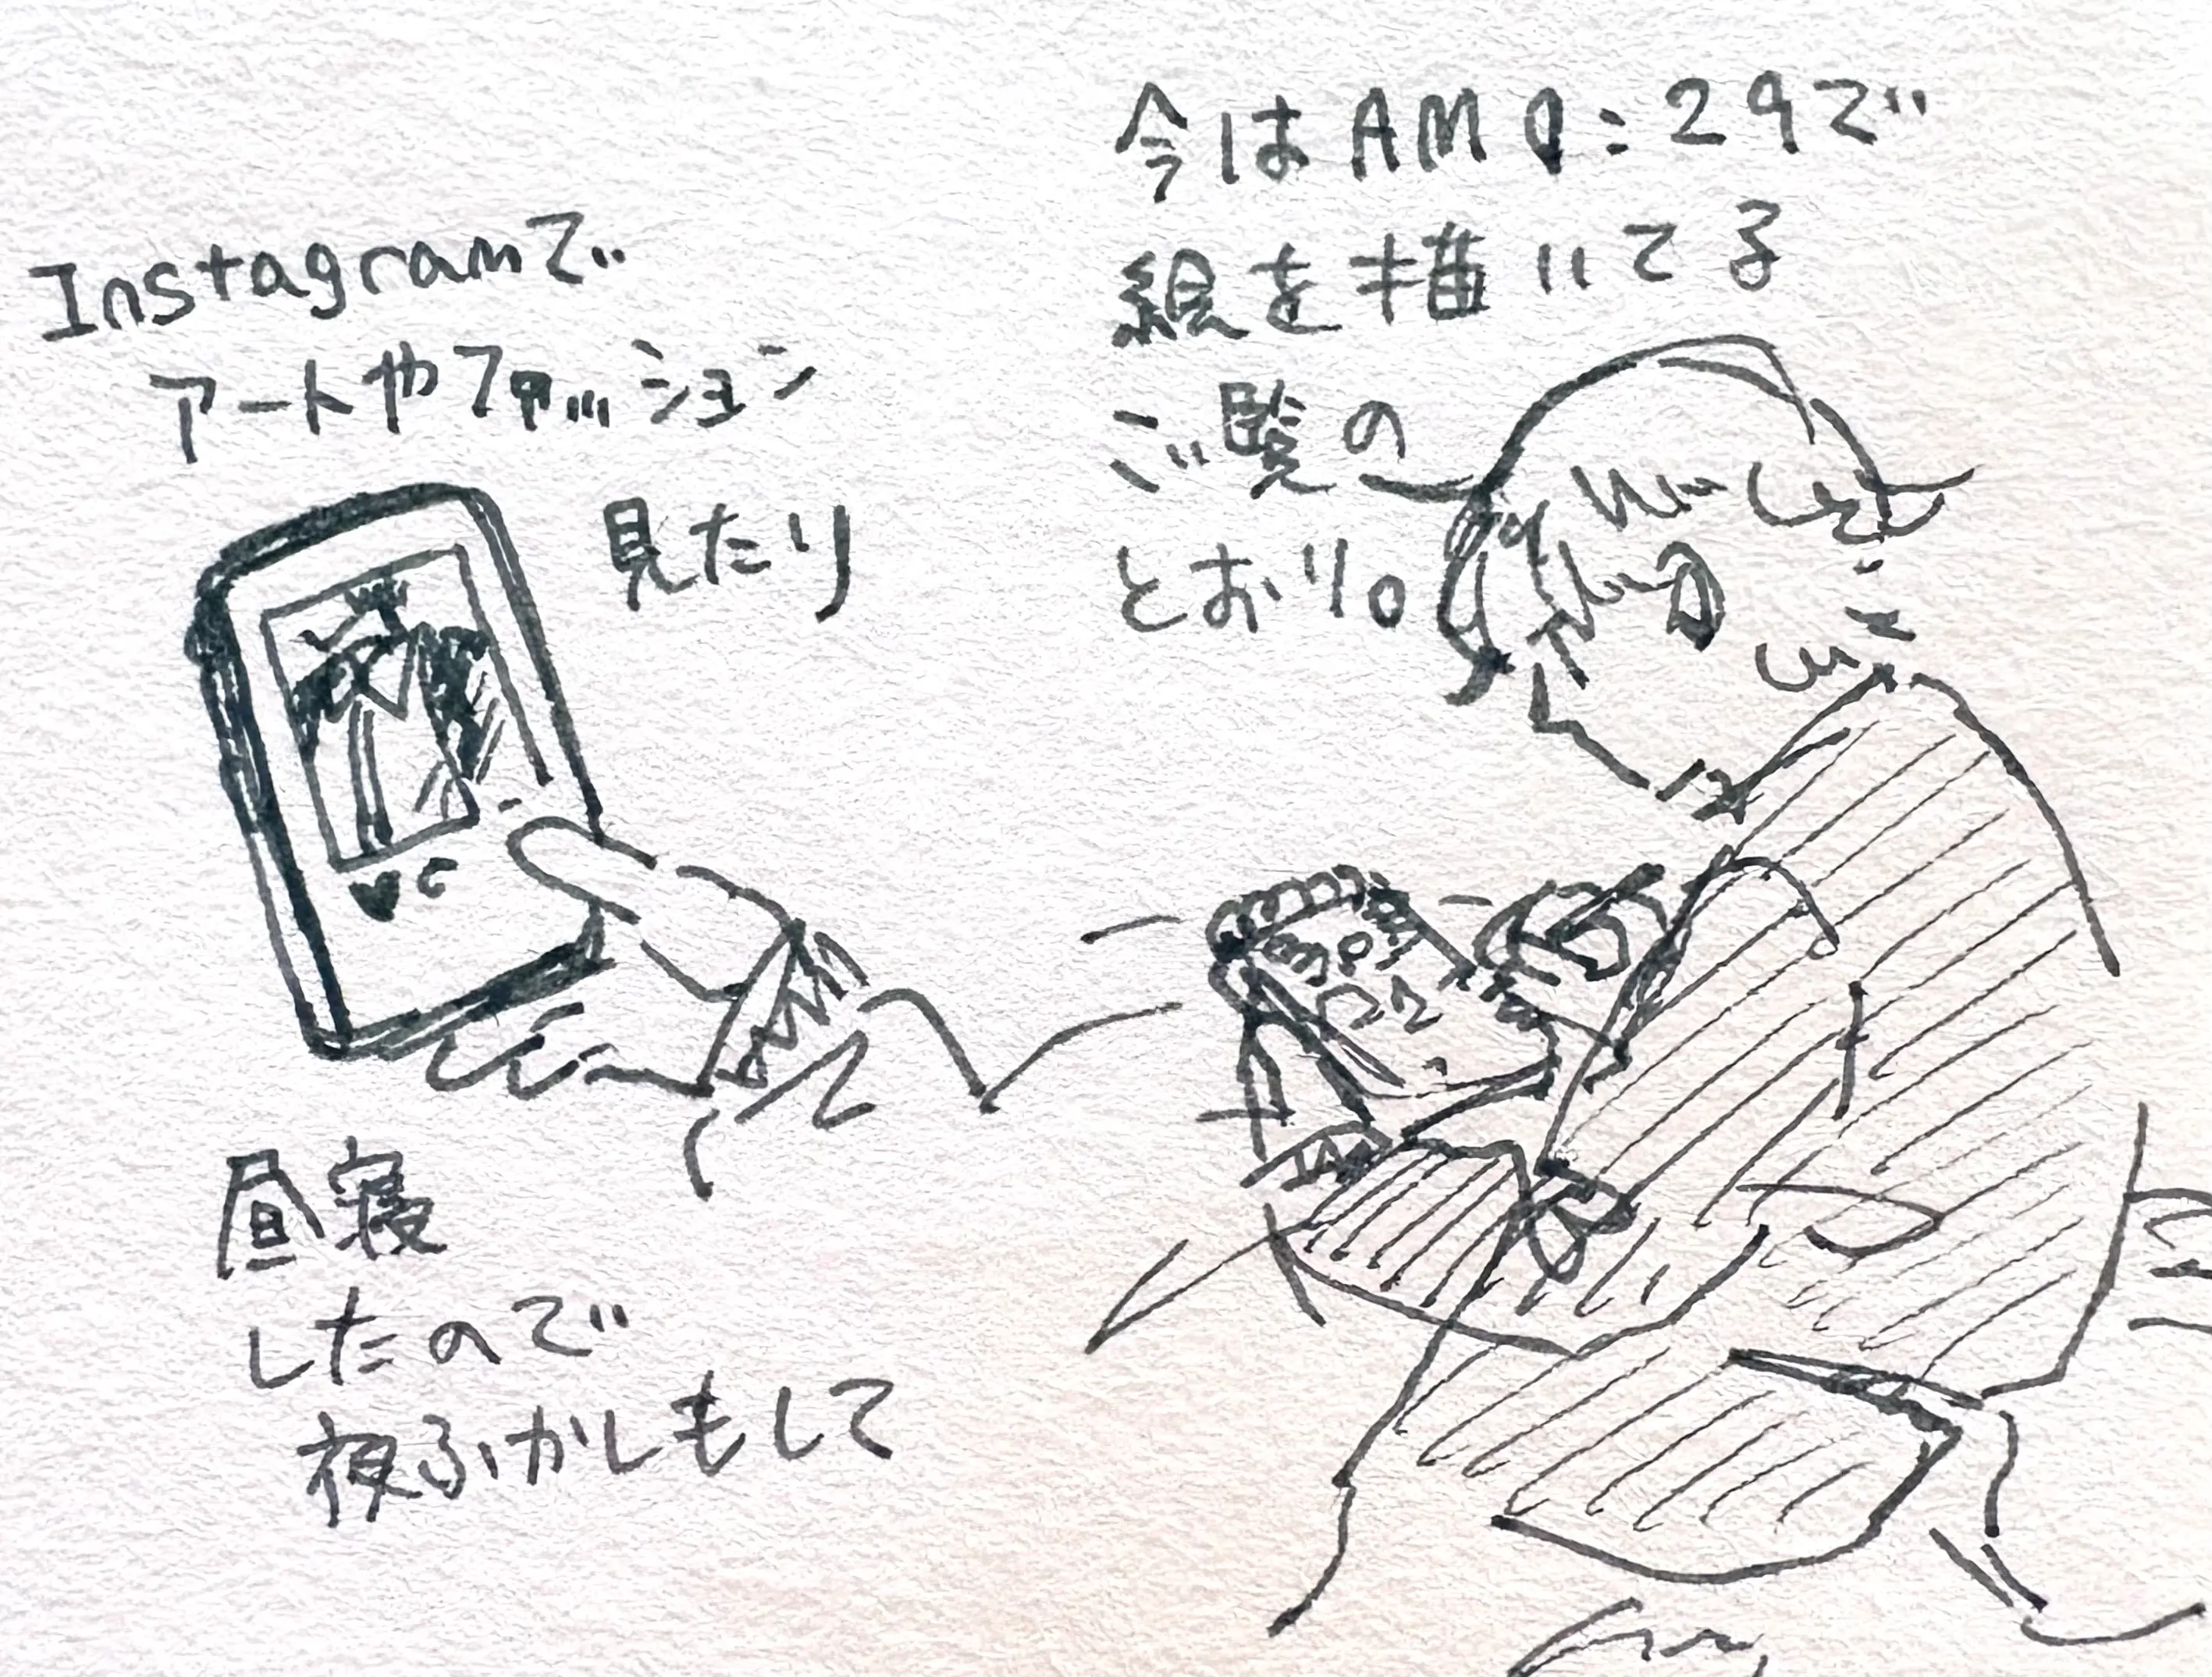 今はAM 0:29で
絵を描いてる
ご覧の
とおり。
Instagramで
アートやファッション
見たり
昼寝
したので
夜ふかしもして